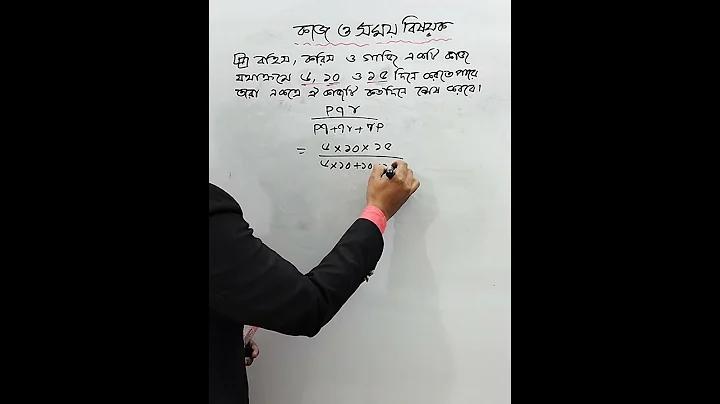 কাজ ও সময় বিষয়ক
রহিম, করিম ও গাজি একটি কাজ
যথাক্রমে ৬, ১০ ও ১৫ দিনে করতে পারে
তারা একত্রে ঐ কাজটি কতদিনে শেষ করবে।
pqr
pq+qr+rp
= ৬×১০×১৫
৬×১০+১০